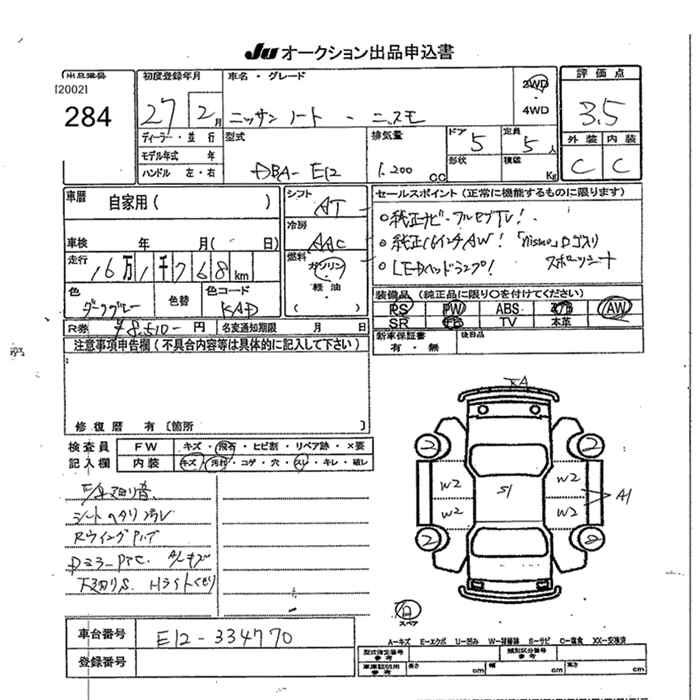 JU オークション出品申込書
[2002]
284
初度登録年月
27 2月
車名・グレード
ニッサン ノート - ニスモ
2WD
・
4WD
評価点
3.5
ディーラー・並行
モデル年式 年
ハンドル 左・右
型式
DBA-E12
排気量
1.200 CC
ドア 5
定員 5人
形状
積載 Kg
外装 内装
C C
車暦
自家用( )
シフト
AT
冷房
AAC
燃料
ガソリン
・
軽油
・
( )
車検 年 月( 日)
走行
16万1千768km
色
ダークグレー
色替
色コード
KAD
R券 ¥8,510- 円
名変通知期限 月 日
セールスポイント(正常に機能するものに限ります)
○純正ナビ・フルセグTV!
○純正16インチAW! 「nismo」ロゴ入り
スポーツシート
○LEDヘッドランプ!
装備品(純正品に限り○を付けてください)
PS PW ABS AW
SR TV 本革
新車保証書
有・無
後日品
注意事項申告欄(不具合内容等は具体的に記入して下さい)
修復暦 有〔箇所 〕
検査員
記入欄
FW キズ・飛石・ヒビ割・リペア跡・×要
内装 キズ・汚れ・コゲ・穴・スレ・キレ・破レ
シートヘタリ
天張りS. Hライトくもり
2
2
2
2
W2
W2
W2
W2
S1
A1
スペア
A-キズ E-エクボ U-凹み S-サビ C-腐食 XX-交換済
車台番号 E12-334770
登録番号
型式指定番号
参考
類別区分番号
参考
長さ cm 幅 cm 高さ cm